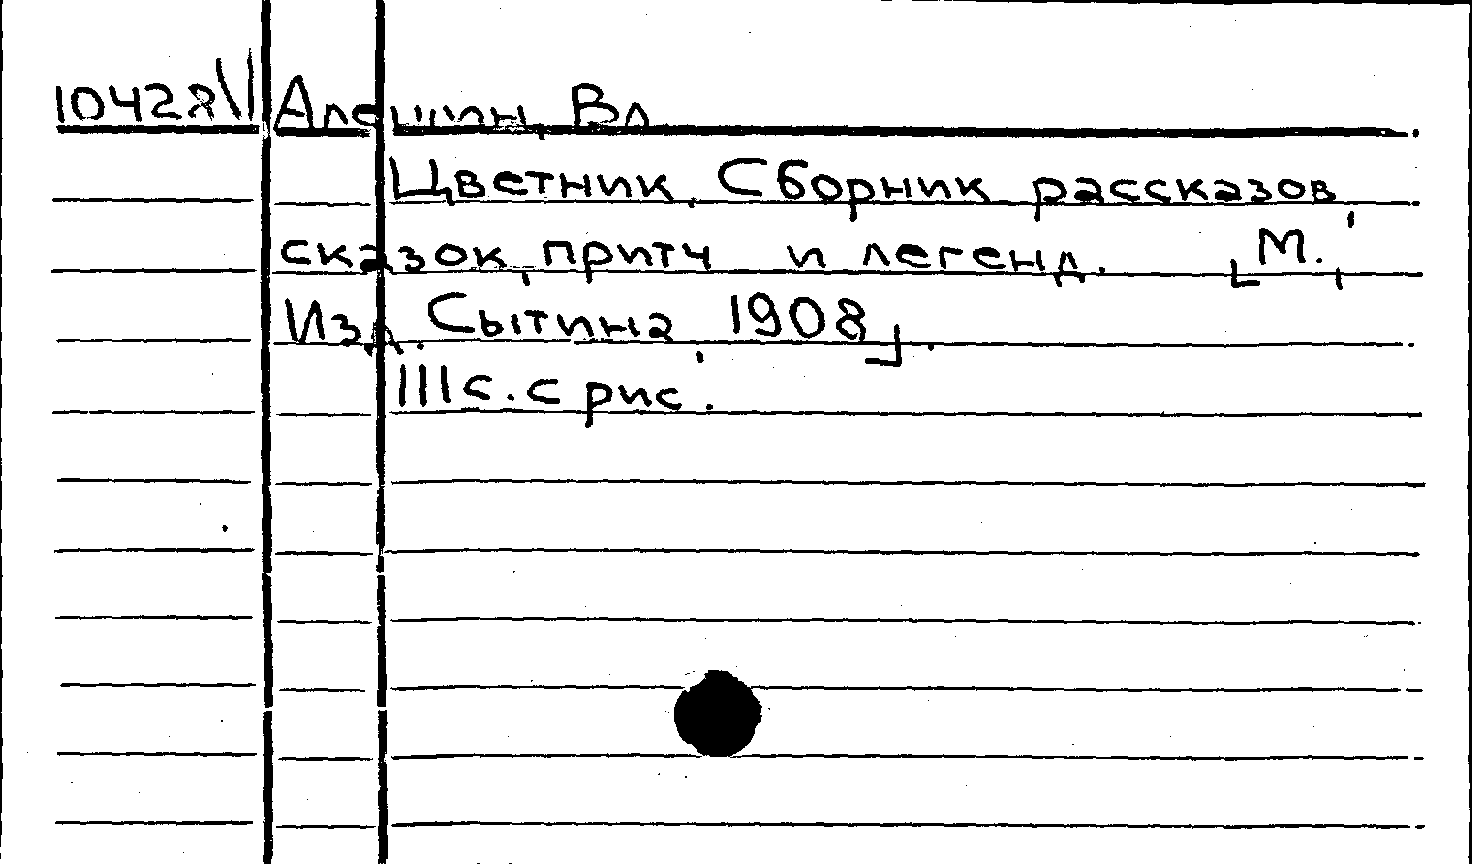 10428\| Алешин, Вл
Цветник. Сборник рассказов,
сказок, притч и легенд. [М.,
Изд. Сытина, 1908].
111 с. с рис.